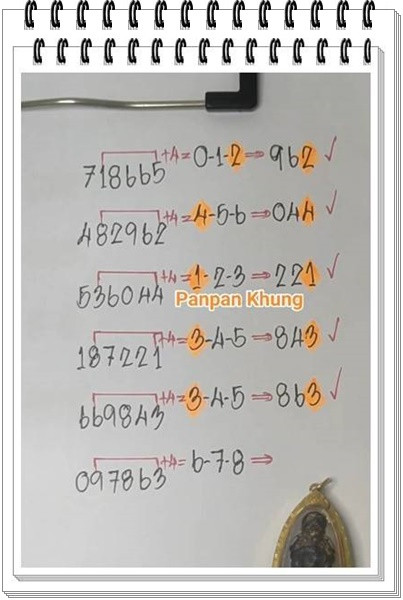 718665 +4 = 0-1-2 ⇒ 962 ✓
482962 +4 = 4-5-6 ⇒ 044 ✓
536044 +4 = 1-2-3 ⇒ 221 ✓
Panpan Khung
187221 +4 = 3-4-5 ⇒ 843 ✓
669843 +4 = 3-4-5 ⇒ 863 ✓
097863 +4 = 6-7-8 ⇒